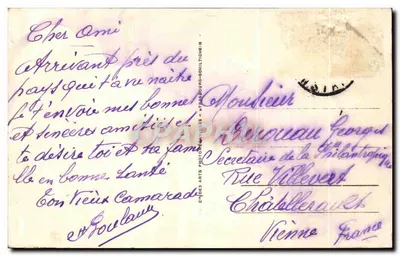 Cher Ami
Arrivant près du
pays qui t'a vu naitre
je t'envoie mes bonnes
et sincères amitiés et
te désire toi et ta fami
lle en bonne santé
Ton Vieux Camarade
Monsieur
Georges
Secrétaire de la
Rue Villevert
Châtellerault
Vienne
France